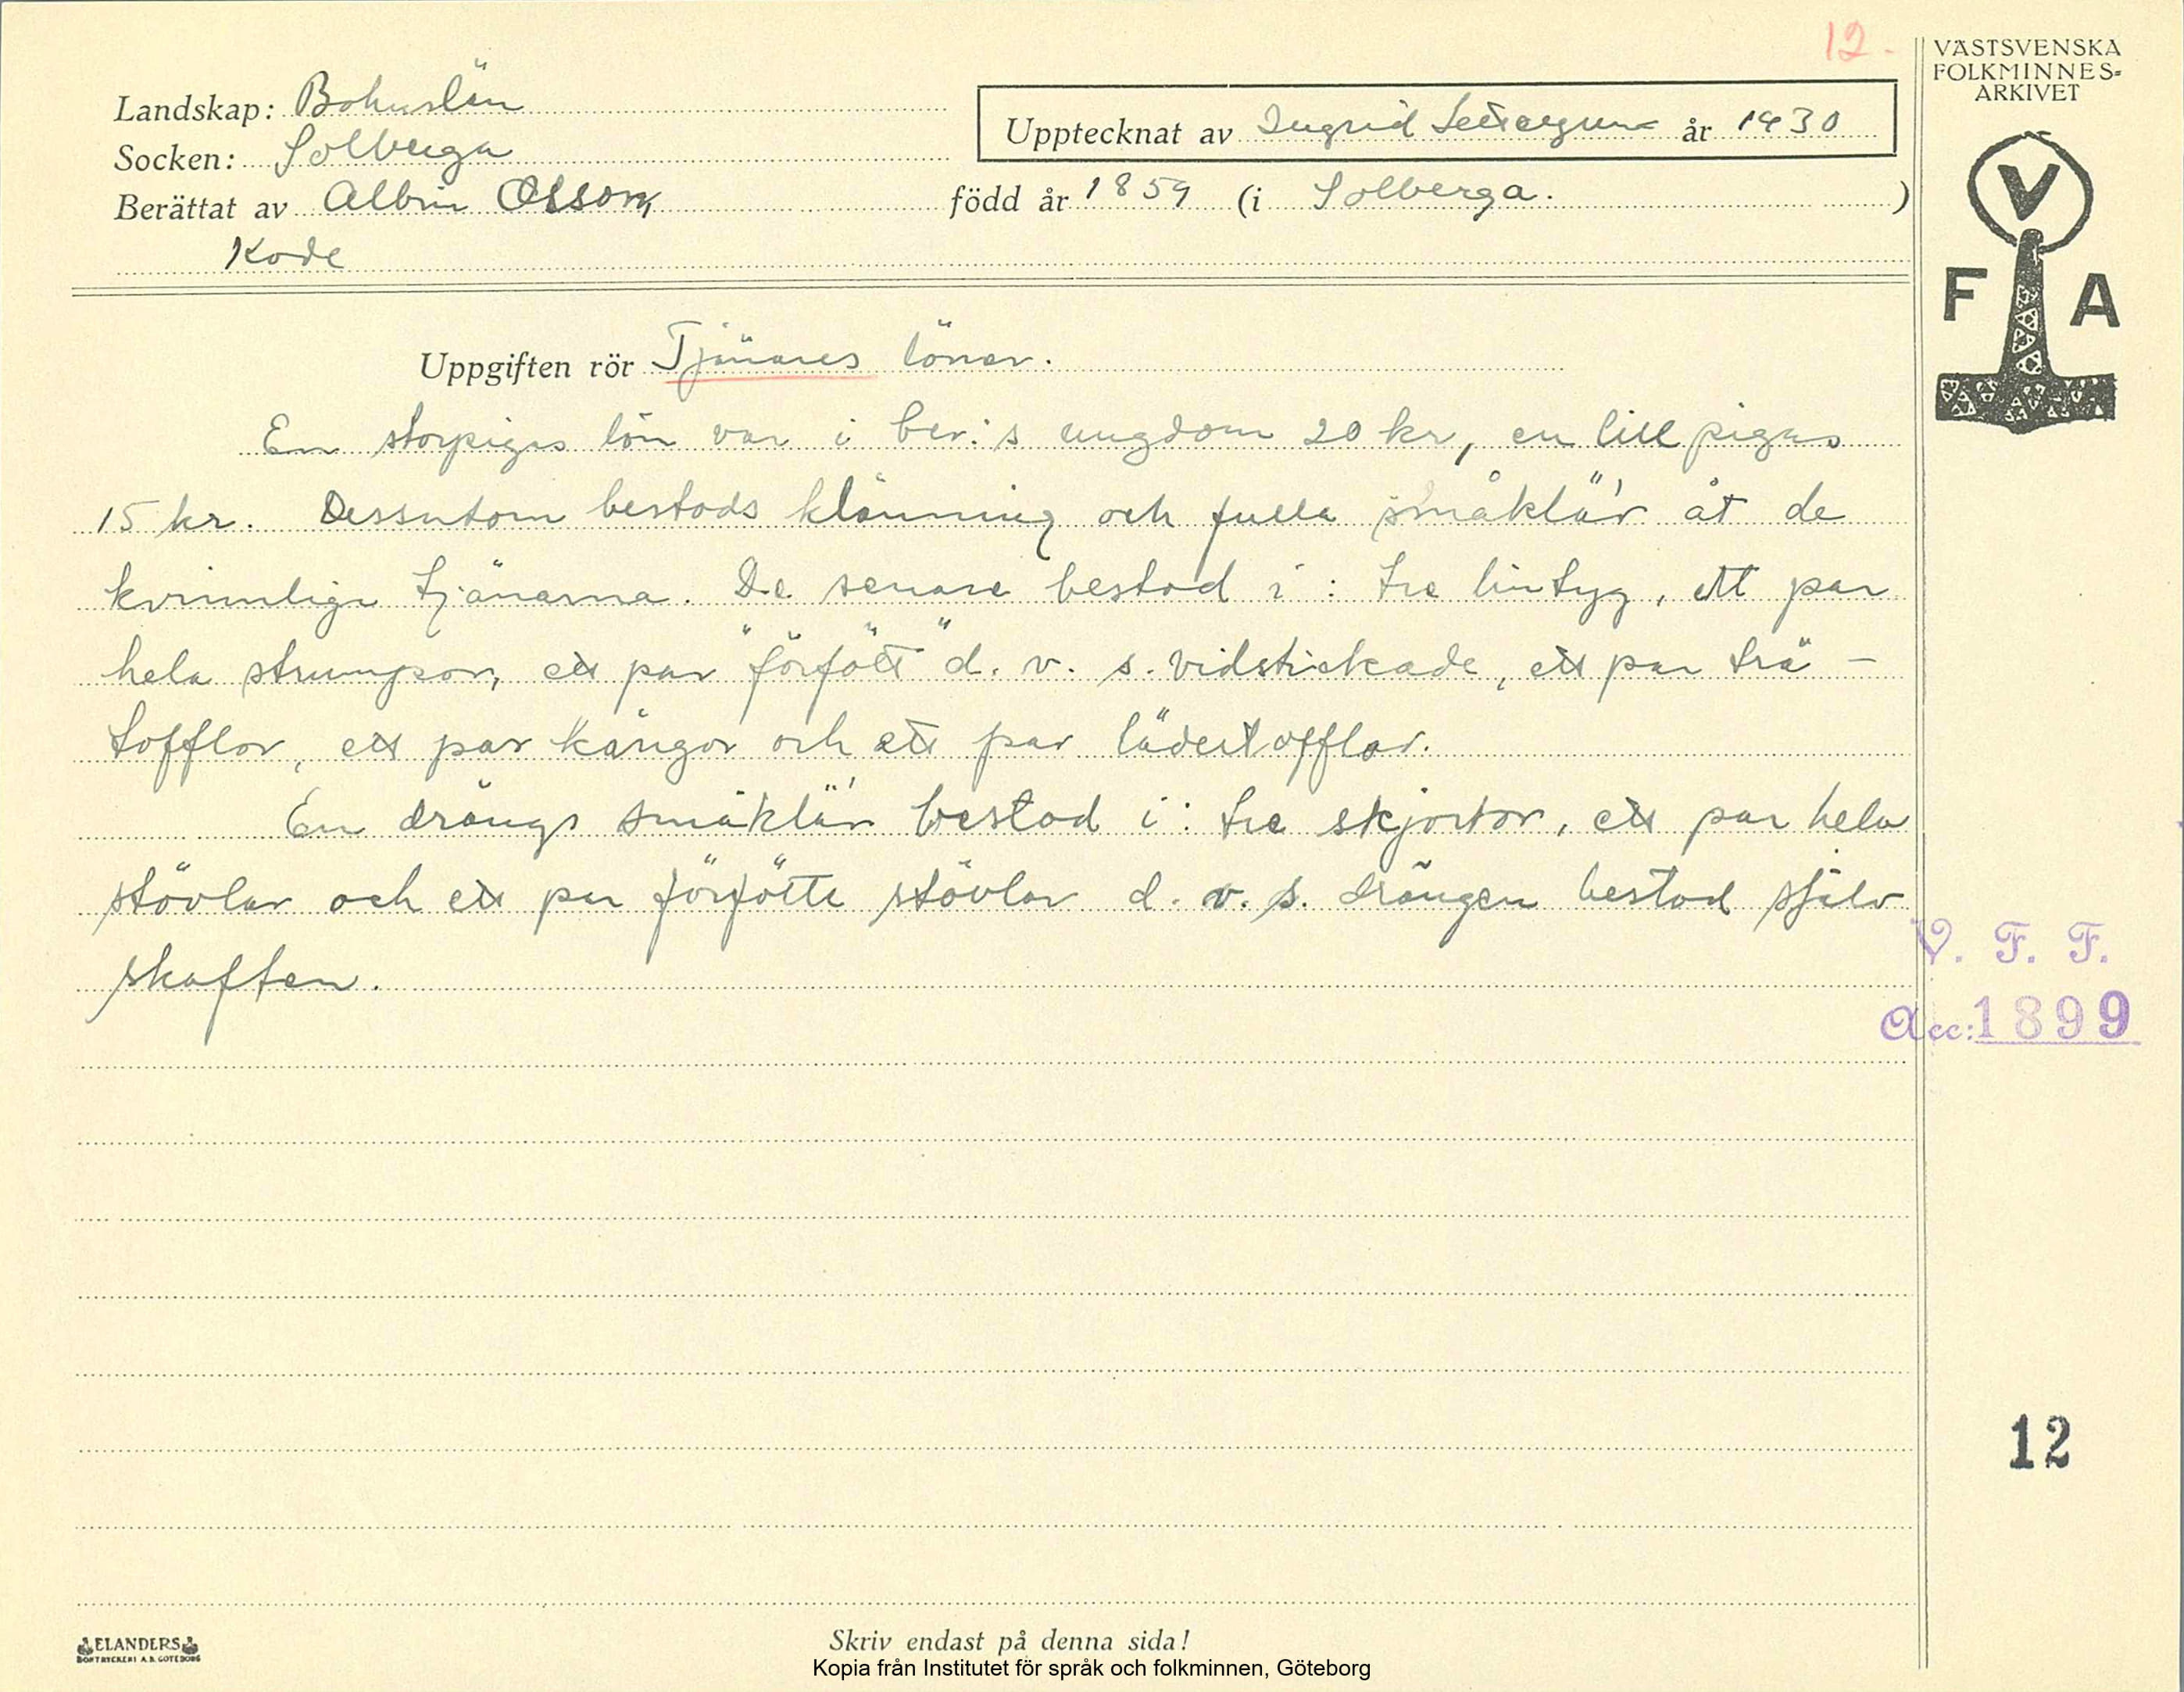 12.
VÄSTSVENSKA
FOLKMINNES=
ARKIVET
Landskap: Bohuslän
Upptecknat av Ingrid år 1930
Socken: Solberga
Berättat av Albin Olsson, född år 1859 (i Solberga. )
Kode
V
F A
Uppgiften rör Tjänares löner.
En storpigas lön var i ber:s ungdom 20 kr, en lill pigas
15 kr. Dessutom bestods klänning och fulla småklä'r åt de
kvinnliga tjänarna. De senare bestod i: tre lintyg, ett par
hela strumpor, ett par "förfött" d. v. s. vidstickade, ett par trä-
tofflor, ett par kängor och ett par lädertofflor.
En drängs småklä'r bestod i: tre skjortor, ett par hela
stövlar och ett par förfötte stövlar d. v. s. drängen bestod själv
skaften.
V. F. F.
Acc: 1899
12
ELANDERS
BOKTRYCKERI A.B. GÖTEBORG
Skriv endast på denna sida!
Kopia från Institutet för språk och folkminnen, Göteborg